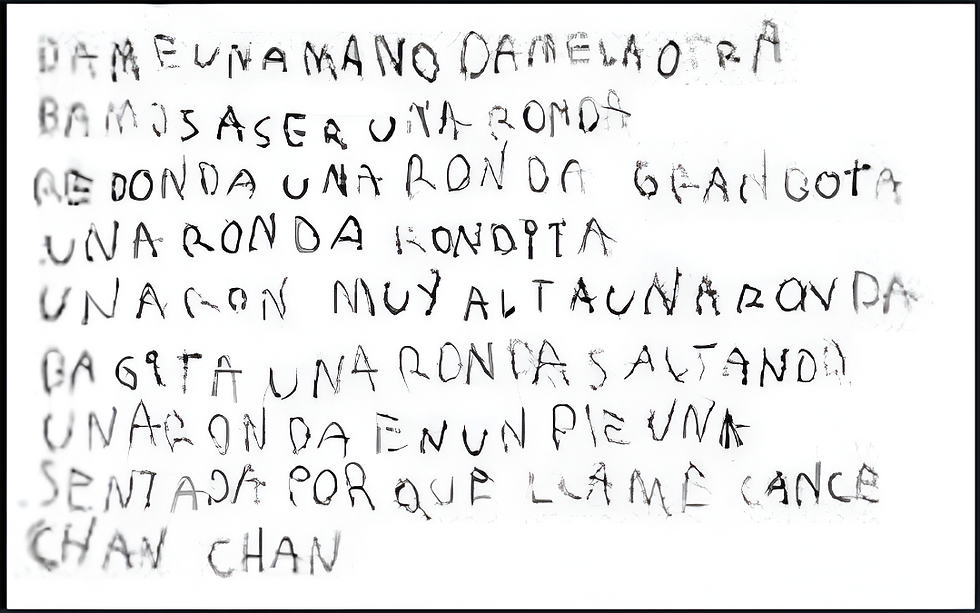 DAMEUNAMANO DAMELAOTRA
BAMOSASER UNA RONDA
REDONDA UNA RONDA GRANGOTA
UNA RONDA RONDITA
UNA RON MUY ALTAUNARONDA
BAGITA UNA RONDA SALTANDO
UNARONDA ENUN PIE UNA
SENTADA POR QUE LLAME CANCE
CHAN CHAN